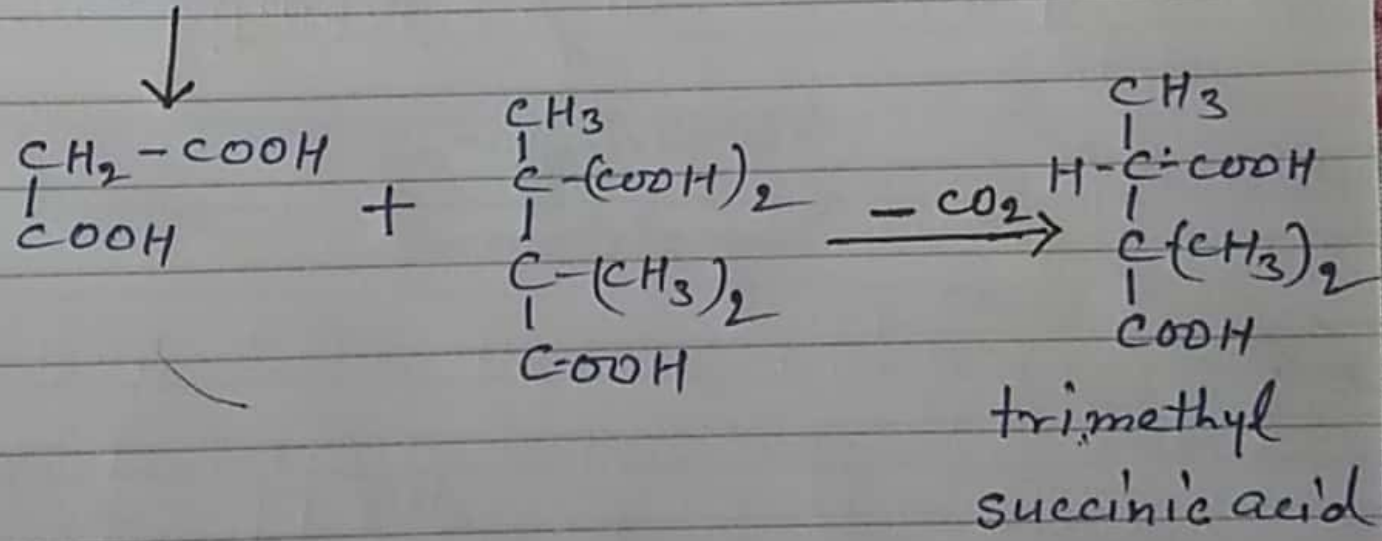 CH2 - COOH
COOH
+
CH3
C-(COOH)2
C-(CH3)2
COOH
- CO2
CH3
H-C-COOH
C(CH3)2
COOH
trimethyl
succinic acid